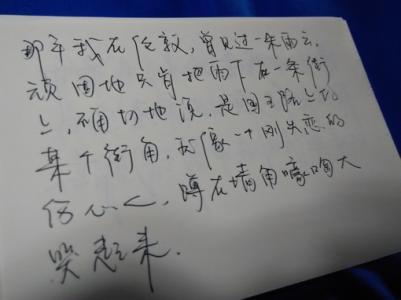 那年我在伦敦，曾见过一朵雨云，
顽固地只肯把雨下在一条街
上，确切地说，是国王路上的
某个街角，就像一个刚失恋的
伤心人，蹲在墙角嚎啕大
哭起来.